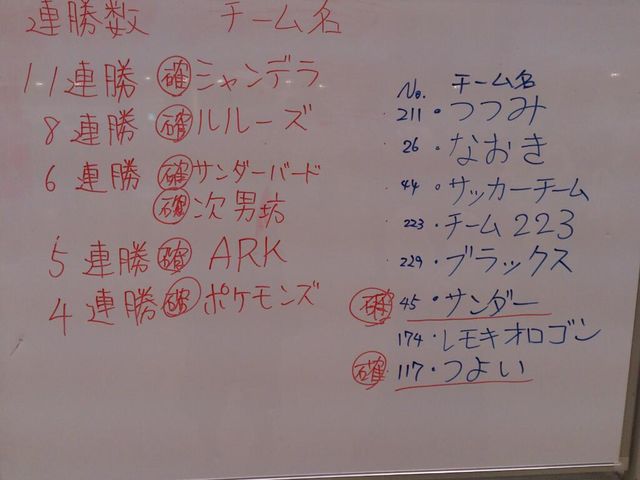 連勝数 チーム名
11連勝 確 シャンデラ
8連勝 確 ルルーズ
6連勝 確 サンダーバード
確 次男坊
5連勝 確 ARK
4連勝 確 ポケモンズ
No. チーム名
211・つつみ
26・なおき
44・サッカーチーム
223・チーム223
229・ブラックス
確 45・サンダー
174・レモキオロゴン
確 117・つよい